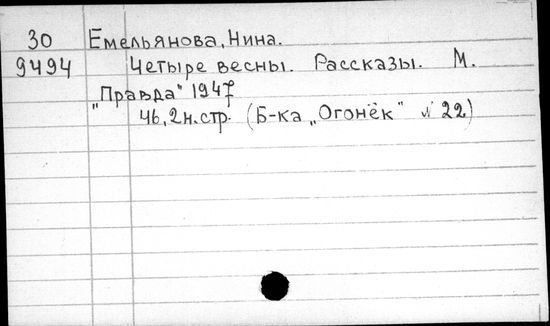 30 Емельянова, Нина.
9494 Четыре весны. Рассказы. М.
„Правда" 1947
46, 2н.стр. (Б-ка „Огонёк" № 22)